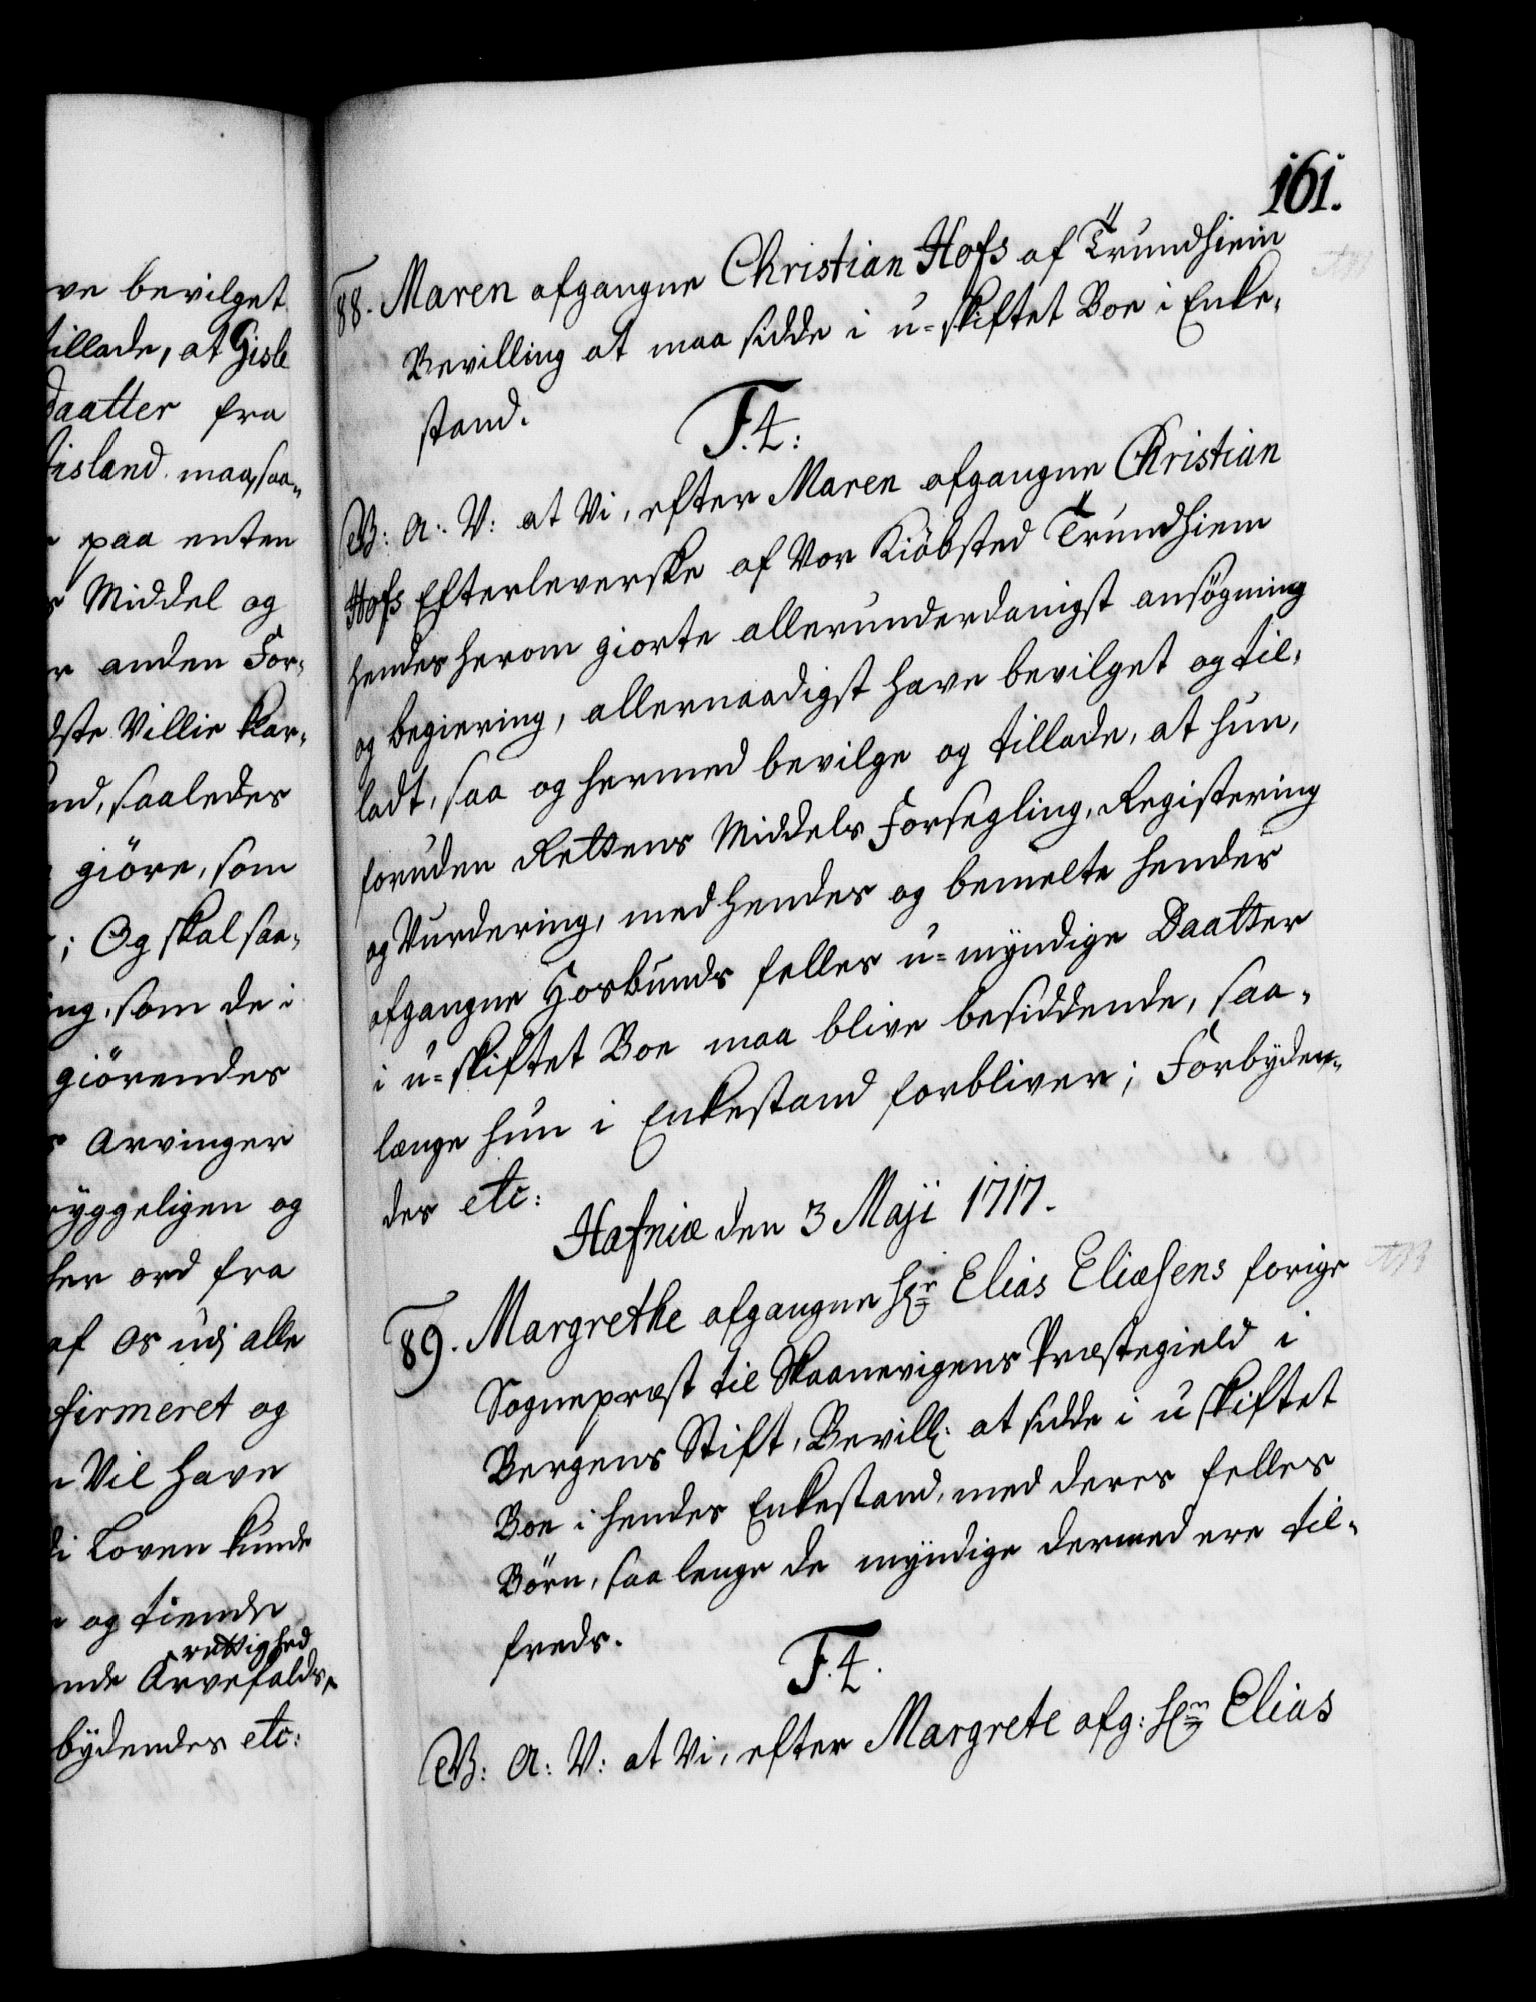 ve bevilget
tillade, at Gisle
daatter fra
island maa, saa-
paa enten
Middel og
anden For-
dste Villie kar-
nd, saaledes
giöre, som
; Og skal saa-
ing, som de i
giörendes
Arvinger
ryggeligen og
her ord fra
af os udj alle
firmeret og
Vil have
di Loven kunde
og tiende
rettighed
nde Arvefalds-
bydendes etc:
161.
88. Maren afgangne Christian Hofs af Trundhiem
Bevilling at maa sidde i u-skiftet Boe i Enke-
stand.
F. 4:
G: A: V: at Vi, efter Maren afgangne Christian
Hofs Efterleverske af Vor Kiöbsted Trundhiem
hendes herom giorte allerunderdanigst ansögning
og begiering, allernaadigst have bevilget og til-
ladt, saa og hermed bevilge og tillade, at hun,
foruden Rettens Middels Forsegling, Registering
og Vurdering, med hendes og bemelte hendes
afgangne Hosbunds felles u-myndige Daatter
i u-skiftet Boe maa blive besiddende, saa-
længe hun i Enkestand forbliver; Forbyden-
des etc:
Hafniæ den 3 Maji 1717.
89. Margrethe afgangne Hr Elias Eliæsens forige
Sognepræst til Skaanevigens Præstegield i
Bergens Stift, Bevill: at sidde i u skiftet
Boe i hendes Enkestand, med deres felles
Börn, saa lenge de myndige dermed ere til-
freds.
F. 4.
G: A: V: at Vi, efter Margrete afg: Hrn Elias